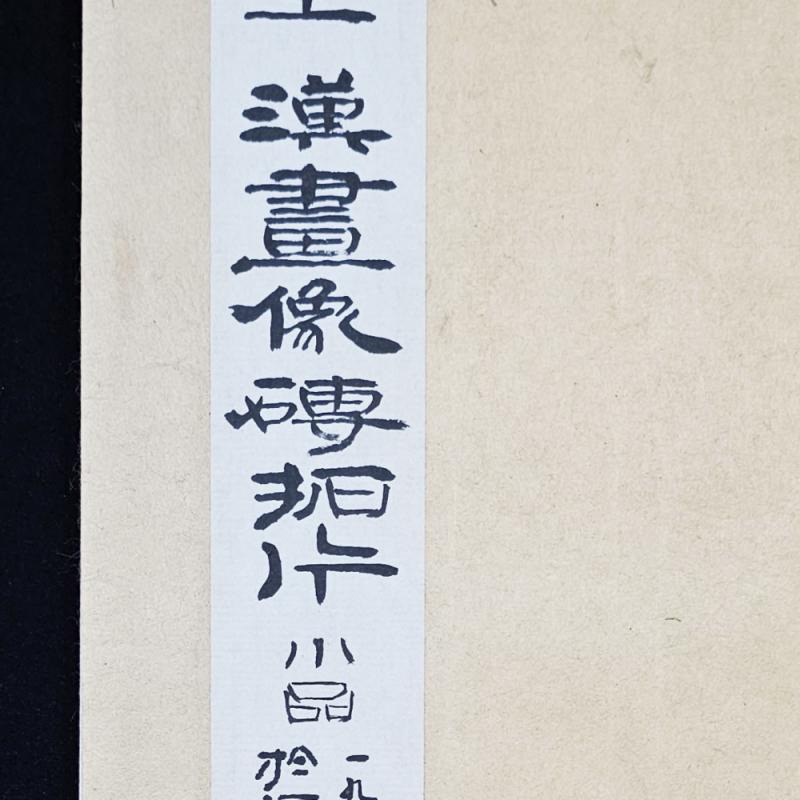 漢畫像磚拓片
小品
一九